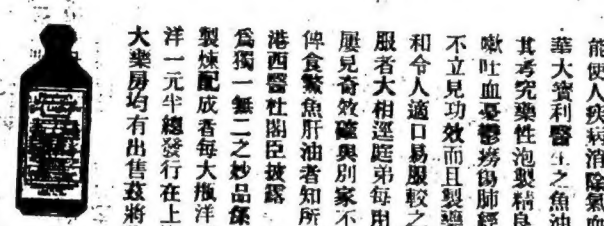 能使人疾病消除氣血
華大寶利醫生之魚油
其考究藥性泡製精良
嗽吐血憂鬱癆傷肺經
不立見功效而且製藥
和令人適口易服較之
服者大相逕庭弟每用
屢見奇效確與別家不
俾食鰵魚肝油者知所
港西醫杜閣臣披露
爲獨一無二之妙品係
製煉配成香每大瓶洋
洋一元半總發行在上
大藥房均有出售茲將